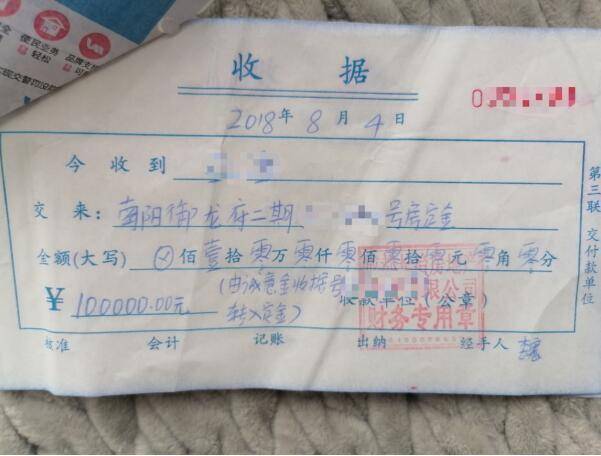 便民业务 品牌支
轻松 可
院交警罚没
收 据
2018年8月4日
今收到
交来：南阳御龙府二期 号房定金
金额(大写) 佰壹拾零万零仟零佰零拾零元零角零分
¥100000.00元
(由诚意金收据号
转入定金)
收款单位(公章)
限公司
财务专用章
核准 会计 记账 出纳 经手人
第三联 交付款单位